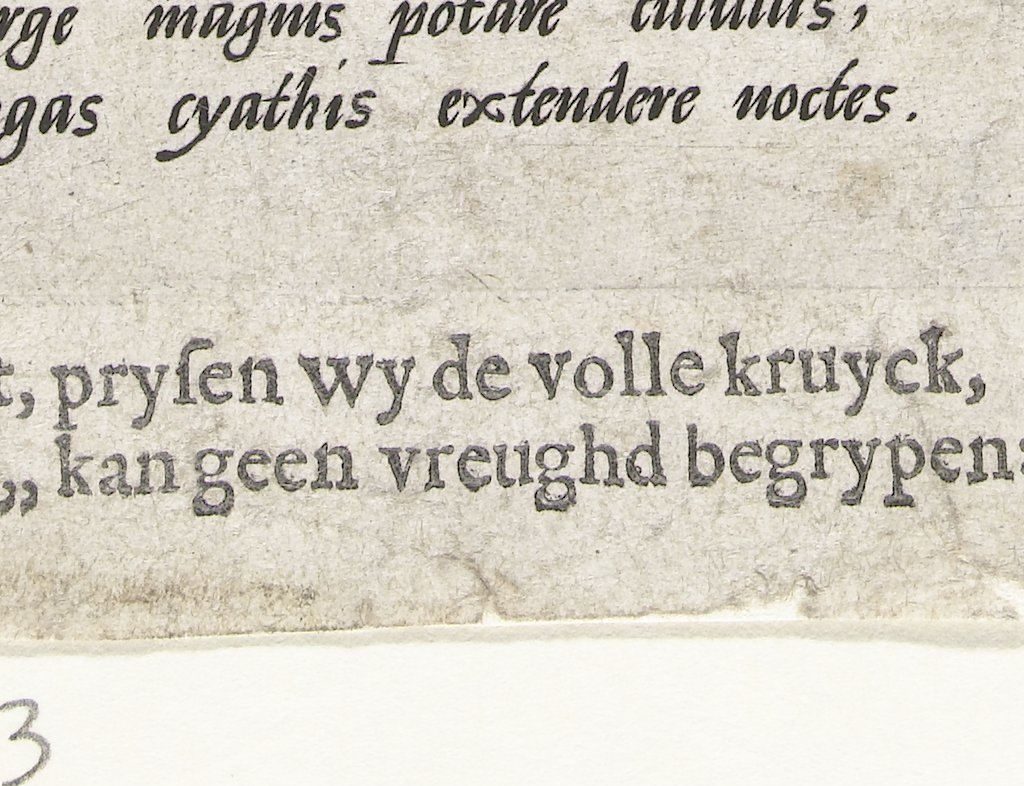 magnis potare culullis,
gas cyathis extendere noctes.
t, pryſen wy de volle kruyck,
„ kan geen vreughd begrypen:
3